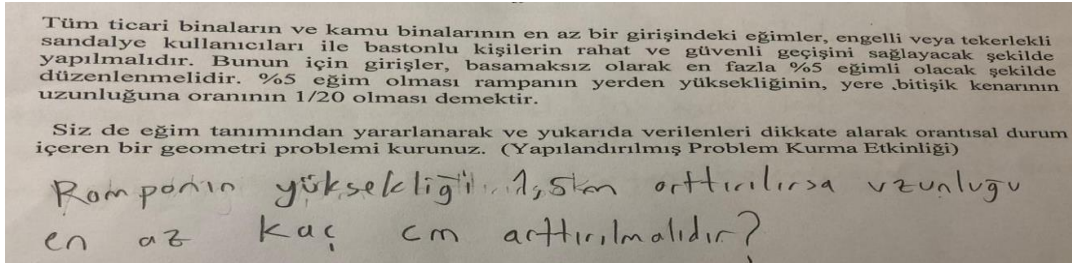 Tüm ticari binaların ve kamu binalarının en az bir girişindeki eğimler, engelli veya tekerlekli
sandalye kullanıcıları ile bastonlu kişilerin rahat ve güvenli geçişini sağlayacak şekilde
yapılmalıdır. Bunun için girişler, basamaksız olarak en fazla %5 eğimli olacak şekilde
düzenlenmelidir. %5 eğim olması rampanın yerden yüksekliğinin, yere bitişik kenarının
uzunluğuna oranının 1/20 olması demektir.
Siz de eğim tanımından yararlanarak ve yukarıda verilenleri dikkate alarak orantısal durum
içeren bir geometri problemi kurunuz. (Yapılandırılmış Problem Kurma Etkinliği)
Rampanın yüksekliği 1,5 arttırılırsa uzunluğu
en az kaç cm arttırılmalıdır?